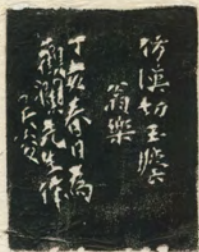 仿漢切玉法
翁樂
丁亥春日為
觀瀾先生作